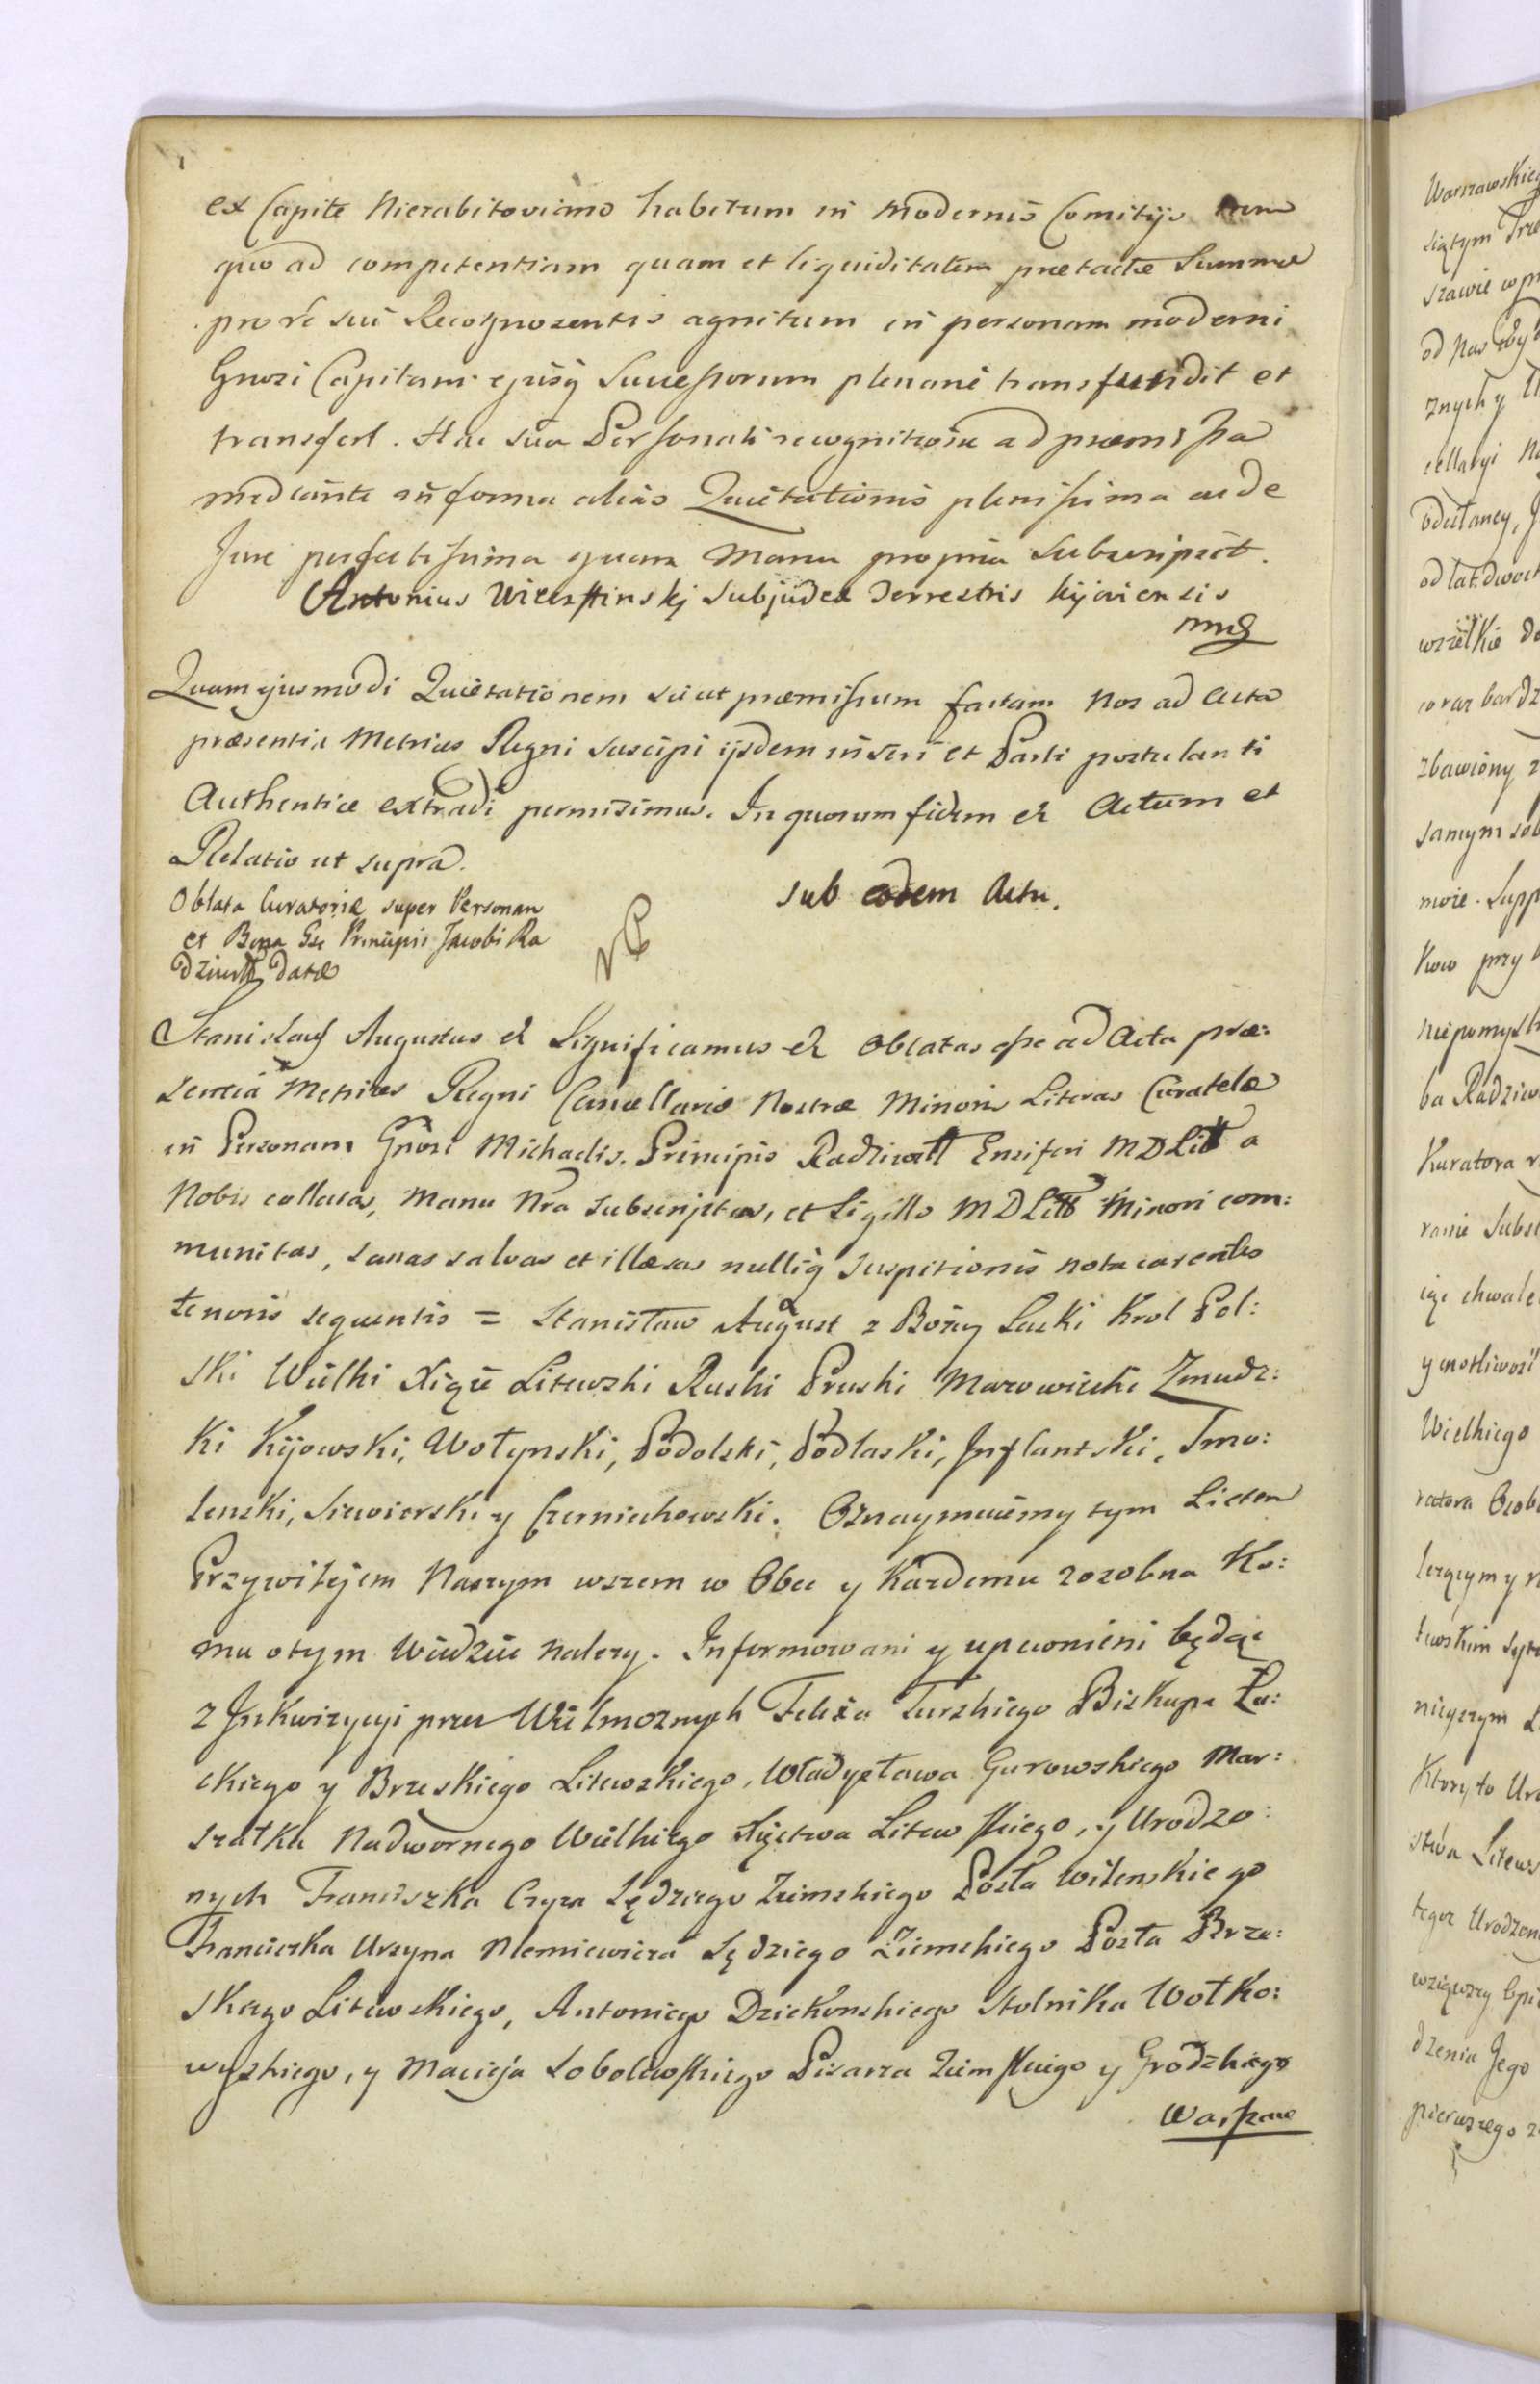 ex Capite Nierabitoviano habitum in modernis Comitijs tum
quo ad competentiam quam et liquiditatem pretactæ Summæ
pro re sui Recognoscentis agnitum in personam moderni
Gnosi Capitanei ejusq Successorum plenarie transfundit et
transfert. Hac sua Personali recognitione ad præmissa
mediante in forma alias Quietationis plenissima ac de
Jure perfectissima quam Manu propria Subscripsit.
Antonius Subjudex Terrestris Kijoviensis
mp
Quam ejusmodi Quietationem sicut præmissum factam Nos ad Acta
præsentia Metrices Regni suscipi ijsdem inseri et Parti postulanti
Authentice extradi permisimus. In quorum fidem et Actum et
Relatio ut supra.
Oblata Curatoriæ super Personam
et Bona Gsi Principis Jacobi Ra
dziwiłł datæ
Sub eodem Actu.
Stanislaus Augustus et Significamus et Oblatas esse ad Acta præ:
sentia Metrices Regni Cancellariæ Nostræ Minoris Literas Curatelæ
in Personam Gnosi Michaelis Principis Radziwiłł Ensiferi MDLitt a
Nobis collatas, Manu Nra subscriptas, et Sigillo MDLitt Minori com:
munitas, sanas salvas et illæsas nulliq suspitionis nota carentes
tenoris sequentis = Stanisław August z Bożey Łaski Krol Pol:
ski Wielki Xiąże Litewski Ruski Pruski Mazowiecki Zmudz:
ki Kijowski, Wołynski, Podolski, Podlaski, Inflantski, Smo:
lenski, Siewierski y Czerniechowski. Oznaymuiemy tym Listem
Przywilejem Naszym wszem w Obec y Kazdemu zosobna Ko:
mu otym Wiedzieć nalezy. Informowani y upewnieni będąc
z Inkwizycyi przez Wielmoznych Felixa Turskiego Biskupa Łu:
ckiego y Brzeskiego Litewskiego, Władysława Gurowskiego Mar:
szałka Nadwornego Wielkiego Xięstwa Litewskiego, y Urodzo:
nych Franciszka Czyza Sędziego Ziemskiego Posła Wilenskiego
Franciszka Urzyna Niemiewicza Sędziego Ziemskiego Posła Brze:
skiego Litewskiego, Antoniego Dziekonskiego Stolnika Wołko:
wyskiego, y Macieja Sobolewskiego Pisarza Ziemskiego y Grodzkiego
Warszaw